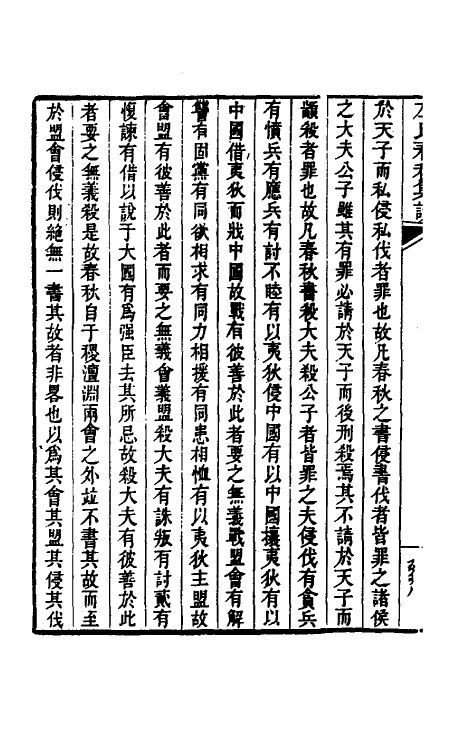 於天子而私侵私伐者罪也故凡春秋之書侵書伐者皆罪之諸侯
之大夫公子雖其有罪必請於天子而後刑殺焉其不請於天子而
顓殺者罪也故凡春秋書殺大夫殺公子者皆罪之夫侵伐有貪兵
有憤兵有應兵有討不睦有以夷狄侵中國有以中國攘夷狄有以
中國借夷狄而戕中國故戰有彼善於此者要之無義戰盟會有解
讐有固黨有同欲相求有同力相援有同患相恤有以夷狄主盟故
會盟有彼善於此者而要之無義會義盟殺大夫有誅叛有討貳有
愎諫有借以說于大國有為强臣去其所忌故殺大夫有彼善於此
者要之無義殺是故春秋自于稷澶淵兩會之外並不書其故而至
於盟會侵伐則絕無一書其故者非畧也以為其會其盟其侵其伐